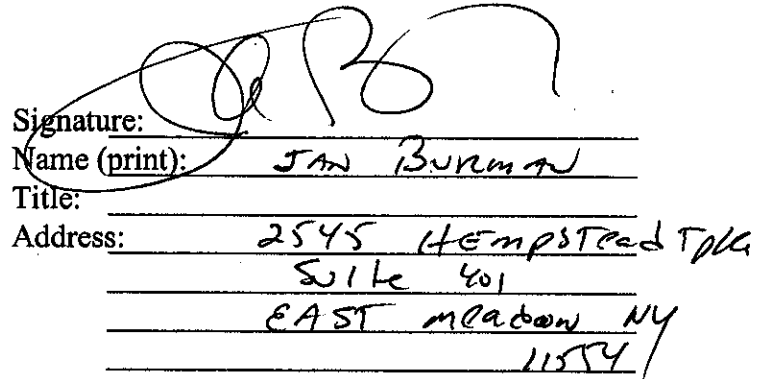 Signature:
Name (print): JAN BURMAN
Title:
Address: 2545 HEmpSTead Tpke
Suite 401
EAST meadow NY
11554